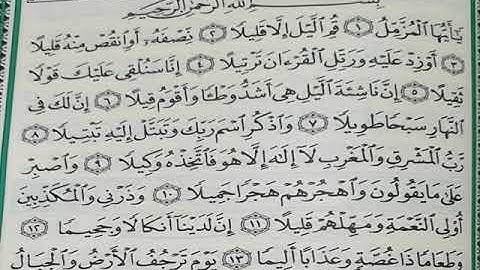 بِسْمِ اللَّهِ الرَّحْمَٰنِ الرَّحِيمِ
يَٰٓأَيُّهَا ٱلْمُزَّمِّلُ ١ قُمِ ٱلَّيْلَ إِلَّا قَلِيلًا ٢ نِّصْفَهُۥٓ أَوِ ٱنقُصْ مِنْهُ قَلِيلًا
٣ أَوْ زِدْ عَلَيْهِ وَرَتِّلِ ٱلْقُرْءَانَ تَرْتِيلًا ٤ إِنَّا سَنُلْقِى عَلَيْكَ قَوْلًا
ثَقِيلًا ٥ إِنَّ نَاشِئَةَ ٱلَّيْلِ هِىَ أَشَدُّ وَطْـًٔا وَأَقْوَمُ قِيلًا ٦ إِنَّ لَكَ فِى
ٱلنَّهَارِ سَبْحًا طَوِيلًا ٧ وَٱذْكُرِ ٱسْمَ رَبِّكَ وَتَبَتَّلْ إِلَيْهِ تَبْتِيلًا ٨
رَّبُّ ٱلْمَشْرِقِ وَٱلْمَغْرِبِ لَآ إِلَٰهَ إِلَّا هُوَ فَٱتَّخِذْهُ وَكِيلًا ٩ وَٱصْبِرْ
عَلَىٰ مَا يَقُولُونَ وَٱهْجُرْهُمْ هَجْرًا جَمِيلًا ١٠ وَذَرْنِى وَٱلْمُكَذِّبِينَ
أُو۟لِى ٱلنَّعْمَةِ وَمَهِّلْهُمْ قَلِيلًا ١١ إِنَّ لَدَيْنَآ أَنكَالًا وَجَحِيمًا ١٢
وَطَعَامًا ذَا غُصَّةٍ وَعَذَابًا أَلِيمًا ١٣ يَوْمَ تَرْجُفُ ٱلْأَرْضُ وَٱلْجِبَالُ